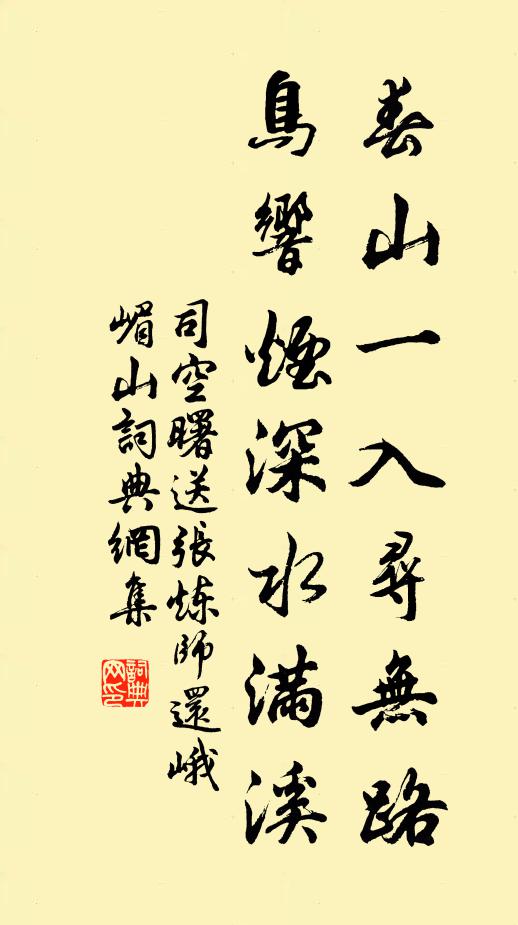 春山一入尋無路
鳥響煙深水滿溪
司空曙送張炼師還峨
嵋山詞典網集
詞典
网印